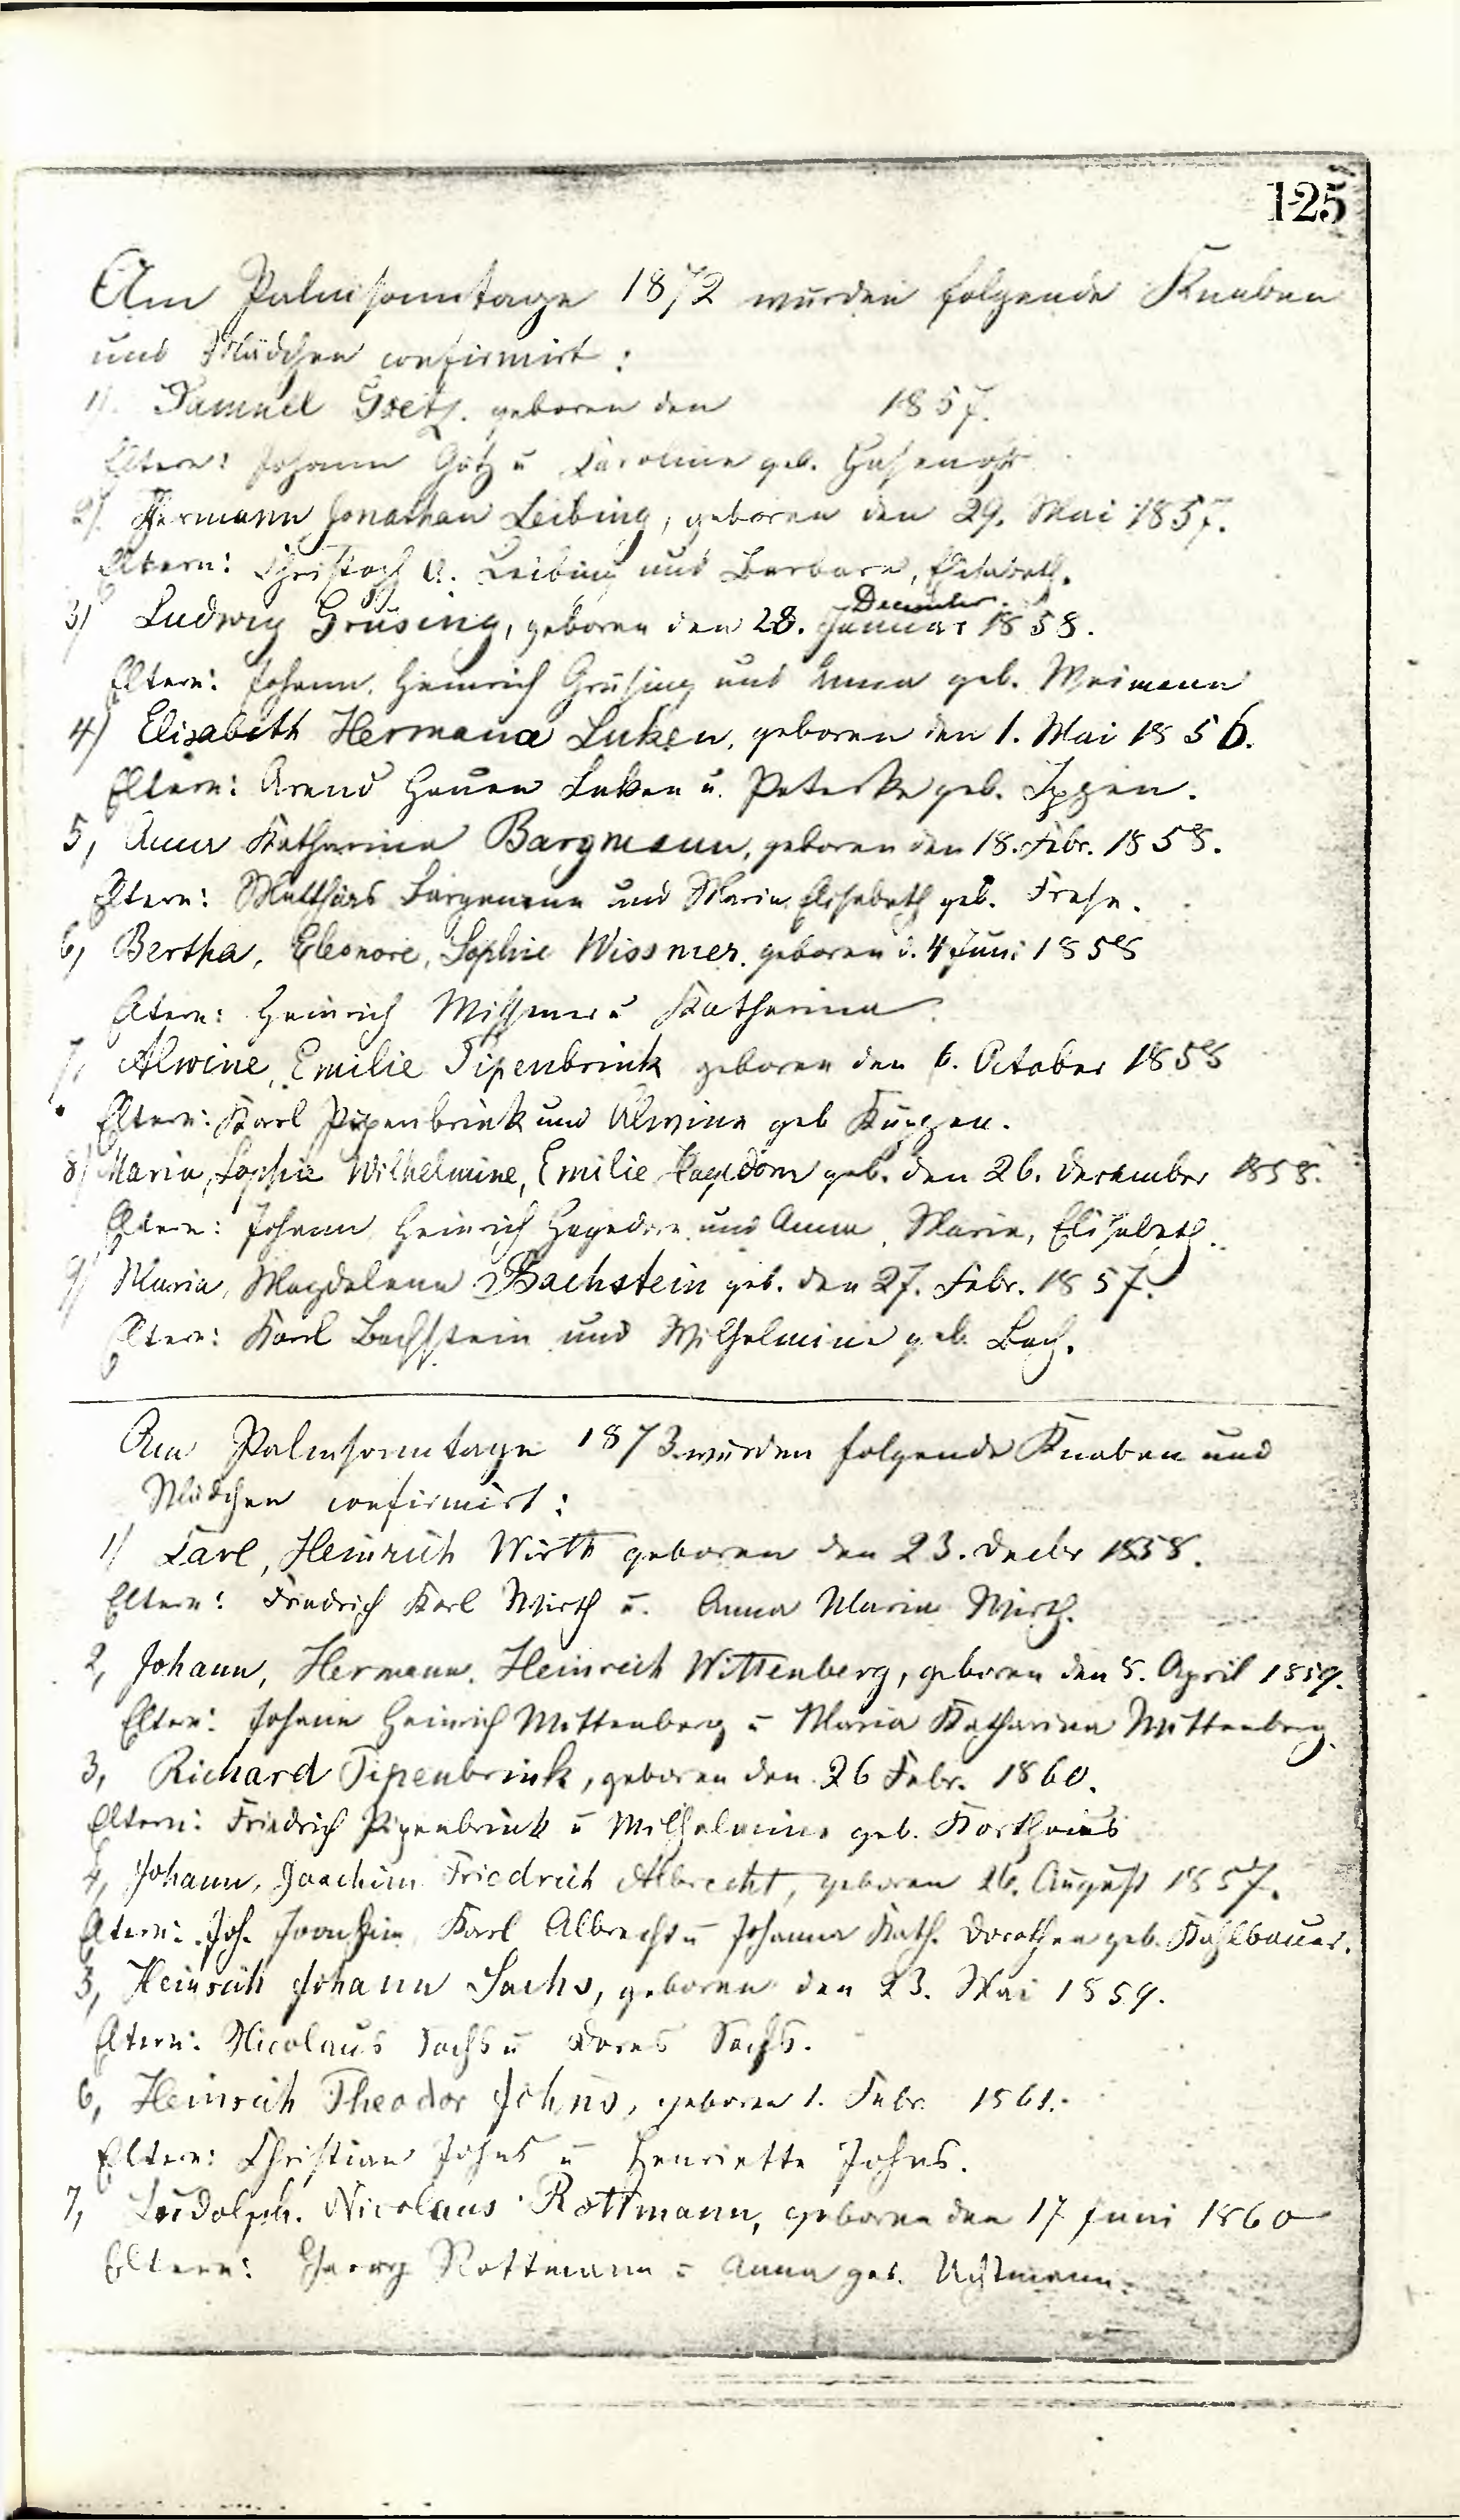 125
Am Palmsonntage 1872 wurden folgende Knaben
und Mädchen confirmirt:
1). Samuel Goetz. geboren den 1857.
Eltern: Johann Götz u Caroline geb.
2). Hermann Jonathan Leibing, geboren den 29. Mai 1857.
Eltern: Christoph A. Leibing und Barbara, Elisabeth.
December.
3) Ludwig Grüsing, geboren den 28. Januar 1858.
Eltern: Johann, Heinrich Grüsing und Anna geb. Weimann
4) Elisabeth Hermana Luken, geboren den 1. Mai 1856.
Eltern: Arend Hauen Luken u. Peterke geb.
5, Anna Katharina Bargmann, geboren den 18. Febr. 1858.
Eltern: Matthias Bargmann und Maria Elisabeth geb. Frese.
6, Bertha, Eleonore, Sophie Wissmer. geboren d. 4 Juni 1858
Eltern: Heinrich Wissmer u Katharina.
7, Alwine, Emilie Pipenbrink geboren den 6. October 1858
Eltern: Karl Pipenbrink und Alwine geb
8) Maria, Sophie Wilhelmine, Emilie Hagedorn geb. den 26. December 1858.
Eltern: Johann Heinrich Hagedorn und Anna, Maria, Elisabeth.
9) Maria, Magdalena Bachstein geb. den 27. Febr. 1857.
Eltern: Karl Bachstein und Wilhelmine geb. Bach.
Am Palmsonntage 1873 wurden folgende Knaben und
Mädchen confirmirt:
1) Carl, Heinrich Wirth geboren den 23. Decbr 1858.
Eltern: Friedrich Karl Wirth u. Anna Maria Wirth.
2, Johann, Hermann, Heinrich Wittenberg, geboren den 8. April 1859.
Eltern: Johann Heinrich Wittenberg u Maria Katharina Wittenberg.
3, Richard Pipenbrink, geboren den 26 Febr. 1860.
Eltern: Friedrich Pipenbrink u Wilhelmine geb. Korthaus
4, Johann, Joachim Friedrich Albrecht, geboren 26. August 1857.
Eltern: Joh. Joachim Karl Albrecht u Johanna Kath. Dorothea geb. Kahlbauer.
5, Heinrich Johann Sachs, geboren den 23. Mai 1859.
Eltern: Nicolaus Sachs u Dores Sachs.
6, Heinrich Theodor Johns, geboren 1. Febr. 1861.
Eltern: Christian Johns u Henriette Johns.
7, Ludolph. Nicolaus Rottmann, geboren den 17 Juni 1860
Eltern: Georg Rottmann u Anna geb.